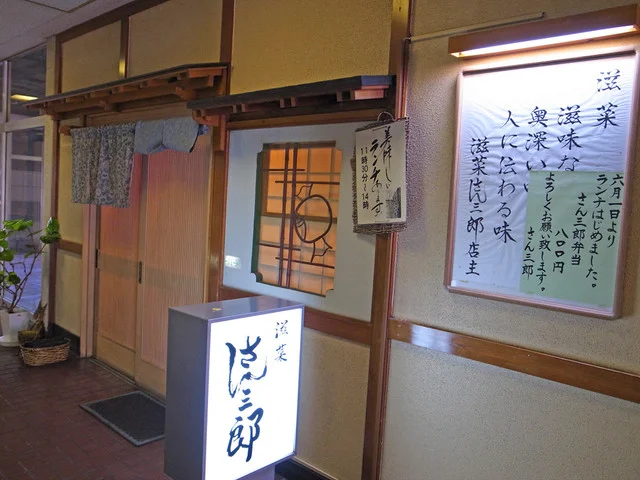 滋菜
滋味な
奥深い
人に伝わる味
滋菜さん三郎 店主
六月一日より
ランチはじめました。
さん三郎弁当
八〇〇円
よろしくお願い致します。
さん三郎
美味しい
ランチ ます
11時30分~14時
滋菜
さん三郎